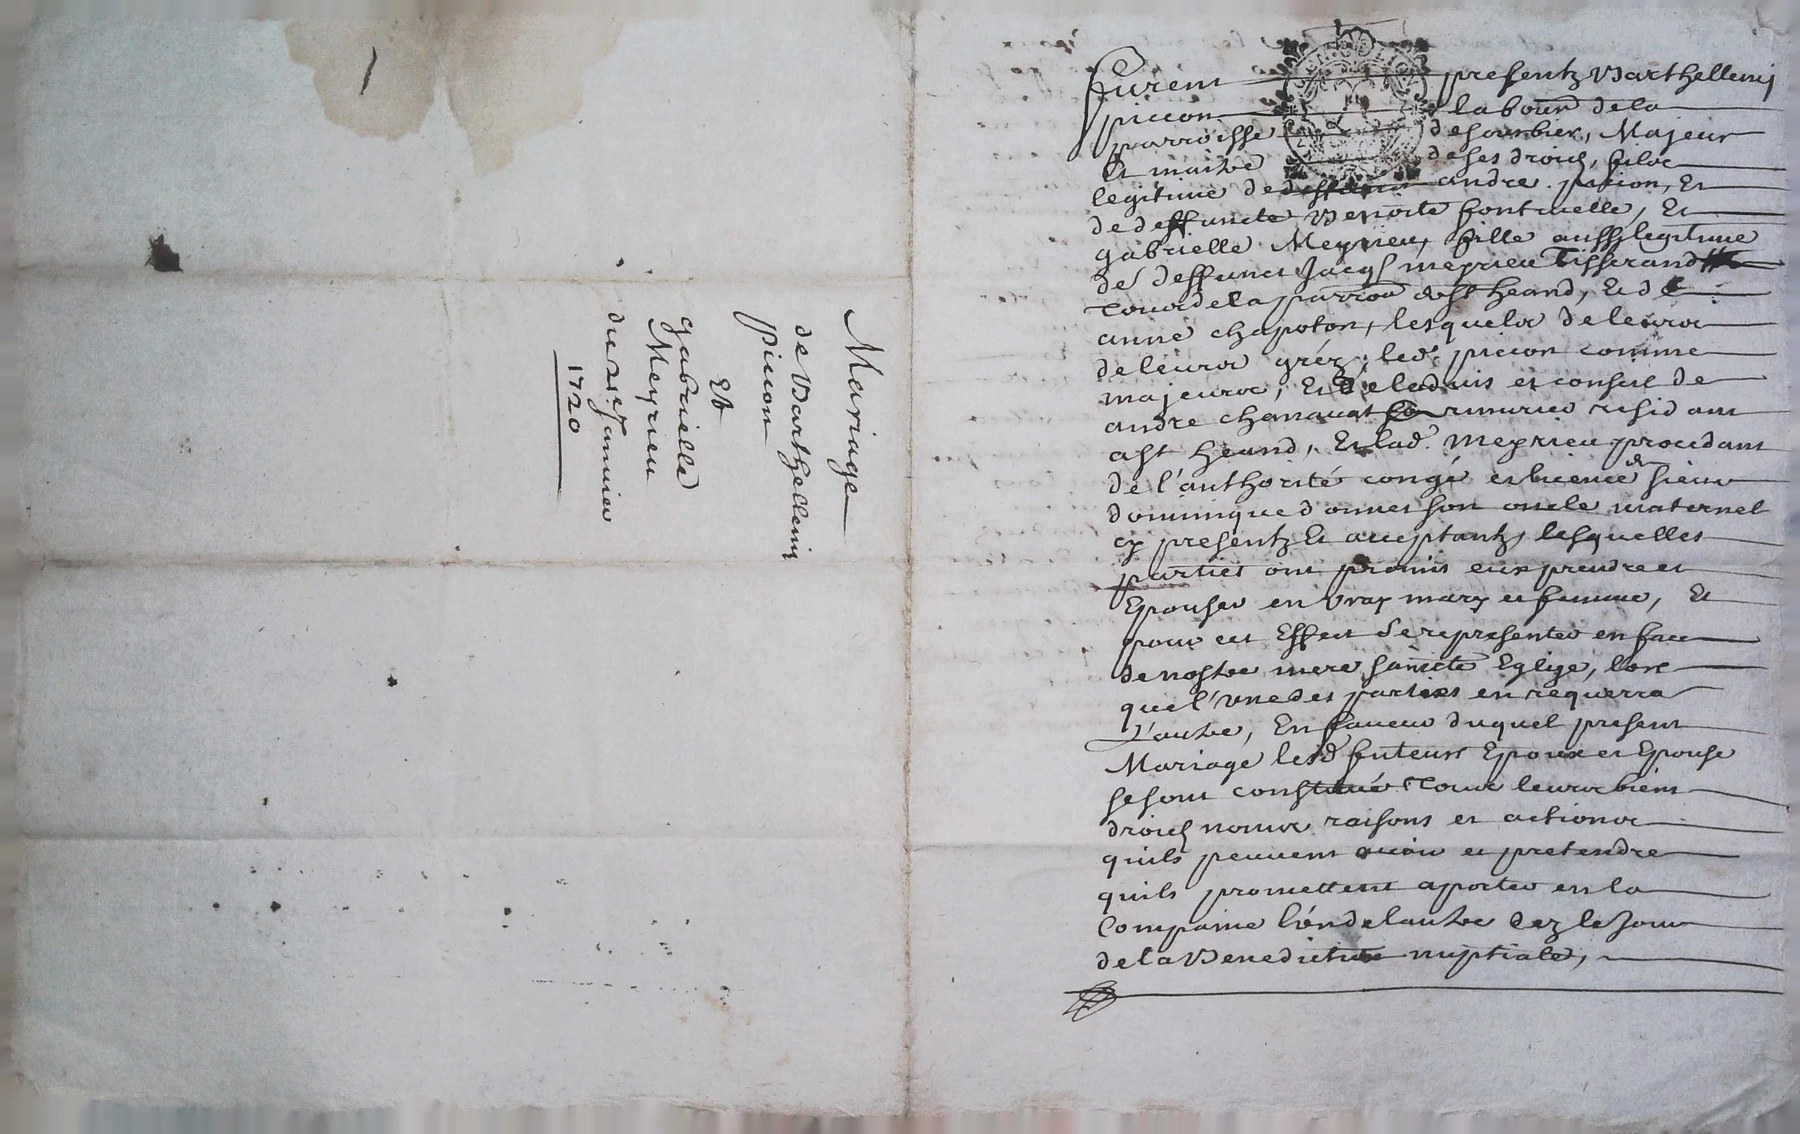 Mariage
de Barthellemi
piccon
Et
Gabrielle
Meyrieu
du 21e Janvier
1720
furent presentz Barthellemi
piccon labour de la
parroisse de Sourbier, Majeur
Et maitre de ses droicts, filz
legitime de deffunct andre piccon, Et
de deffuncte Benoite fontvielle, Et
gabrielle Meyrieu, fille aussy legitime
de deffunct Jacqs meyrieu Tisserand
de la parroisse de St heand, Et de
anne chapoton, lesquelz de leurs
de leurs gréz, led. piccon comme
majeurs, Et de ladvis et conseil de
andre chanavat armurier residant
a St heand, Et lad. Meyrieu procedant
de l'authorité congé et licence de sieur
dominique donnet son oncle maternel
cy presentz Et acceptantz, lesquelles
parties ont promis eux prendre et
Epouser en vray mary et femme, Et
pour cet Effect Se representer en face
de nostre mere saincte Eglize, lors
que l'une des parties en requerra
L'autre, En faveur duquel present
Mariage lesd futeurs Epoux et Epouse
se sont constitué Tous leurs biens
droicts noms raisons et actions
quils peuvent avoir et pretendre
quils promettent aporter en la
Compaine l'un de lautre dez le Jour
de la Benediction nuptiale,